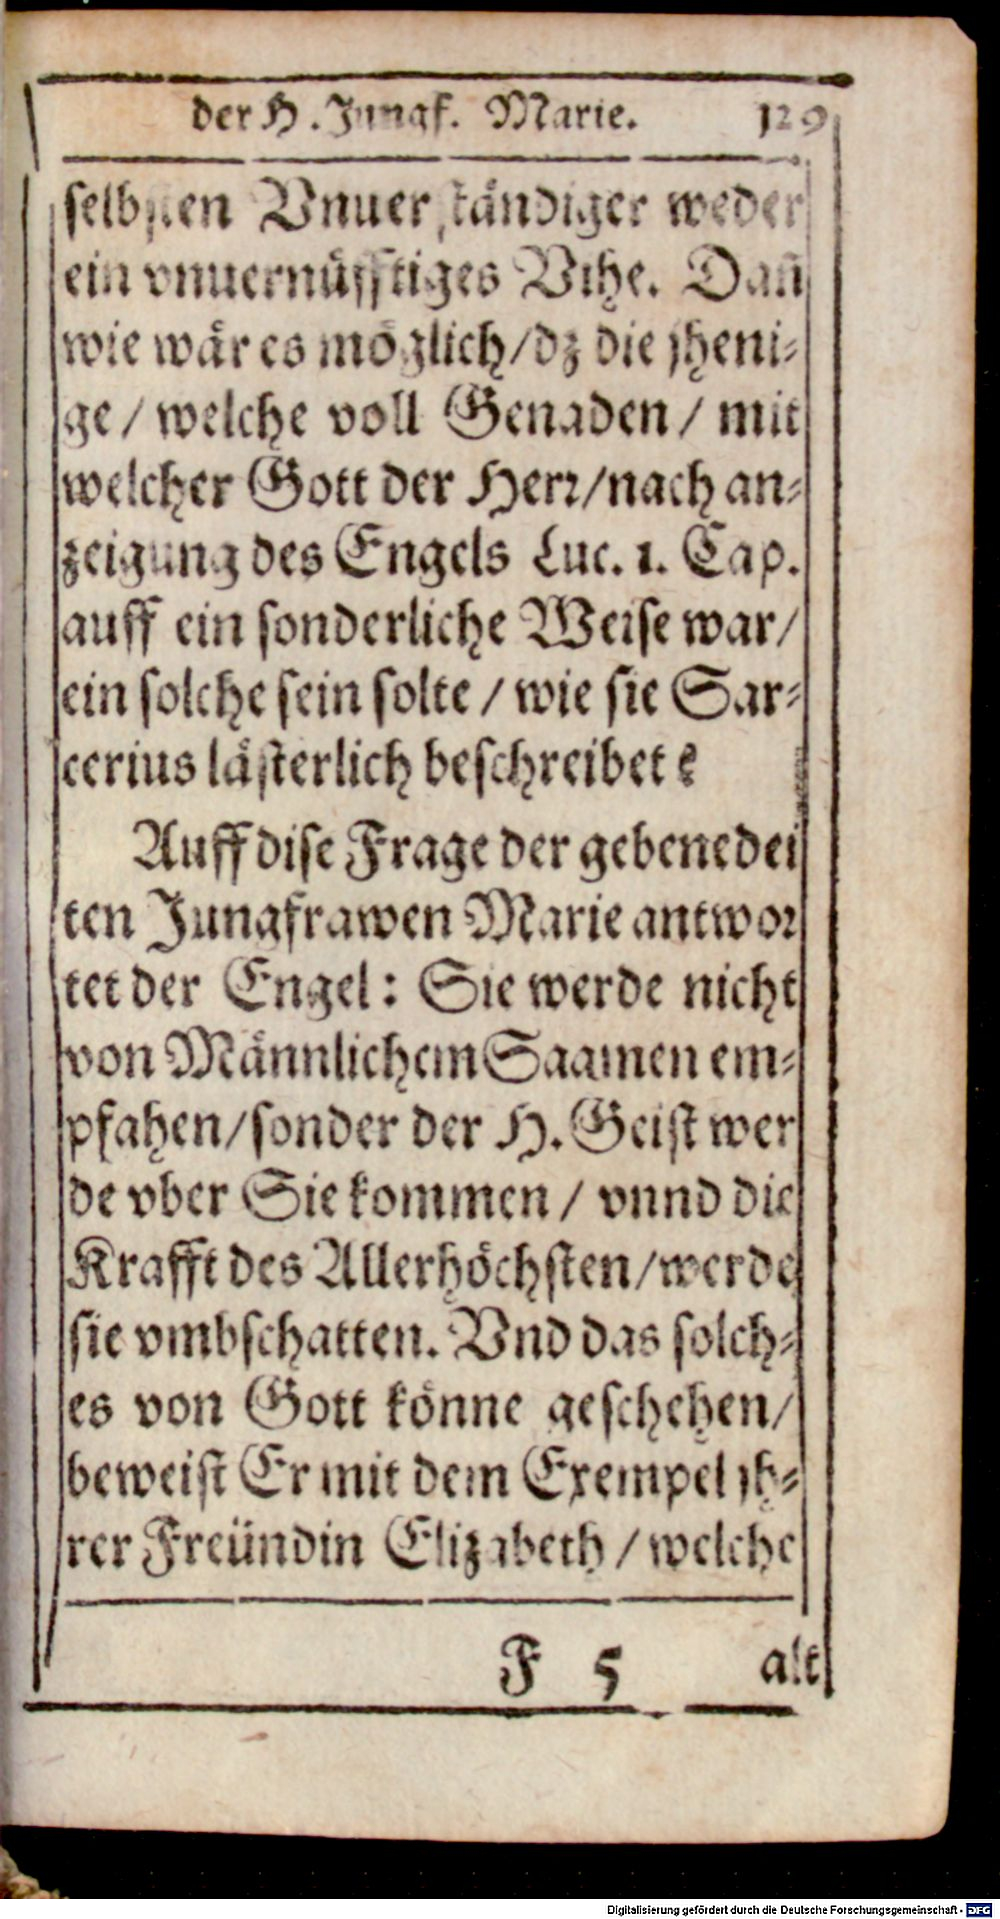 der H. Jungf. Marie. 129
selbsten Vnuerständiger weder
ein vnuernüfftiges Vihe. Dañ
wie wär es möglich/dz die jheni-
ge/ welche voll Genaden/ mit
welcher Gott der Herr/nach an-
zeigung des Engels Luc. 1. Cap.
auff ein sonderliche Weise war/
ein solche sein solte/ wie sie Sar-
cerius lästerlich beschreibet?
Auff dise Frage der gebenedei
ten Jungfrawen Marie antwor
tet der Engel: Sie werde nicht
von Männlichem Saamen em-
pfahen/sonder der H. Geist wer
de vber Sie kommen/ vnnd die
Krafft des Allerhöchsten/werde
sie vmbschatten. Vnd das solch-
es von Gott könne geschehen/
beweist Er mit dem Exempel jh-
rer Freündin Elizabeth/ welche
F 5 alt
Digitalisierung gefördert durch die Deutsche Forschungsgemeinschaft - DFG